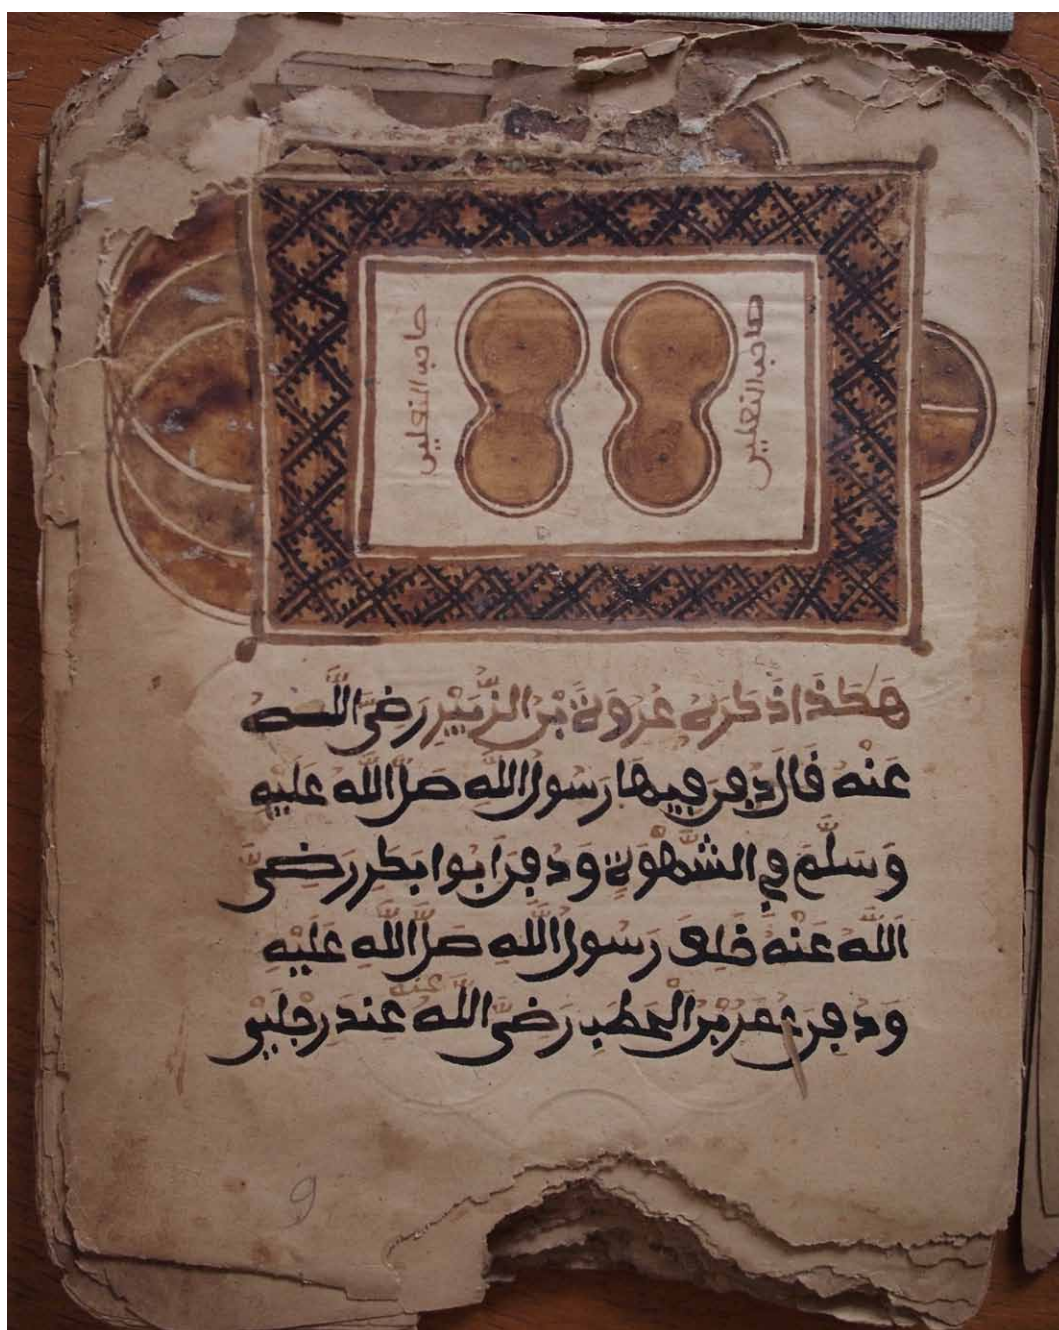 صاحب النعلين
صاحب النعلين
هَكَذَا اذَكَرَهُ عُرْوَةُ بْنُ الزُّبَيْرِ رَضِيَ اللَّهُ
عَنْهُ قَالَ دُفِنَ فِيهَا رَسُولُ اللَّهِ صَلَّ اللَّهُ عَلَيْهِ
وَسَلَّمَ فِي الشَّهْوَةِ وَدُفِنَ ابُوا بَكْرٍ رَضِيَ
اللَّهُ عَنْهُ خَلْفَ رَسُولِ اللَّهِ صَلَّ اللَّهُ عَلَيْهِ
وَدُفِنَ عُمَرُ بْنُ الْخَطَبِ رَضِيَ اللَّهُ عَنْهُ عِنْدَ رِجْلَيْ
9